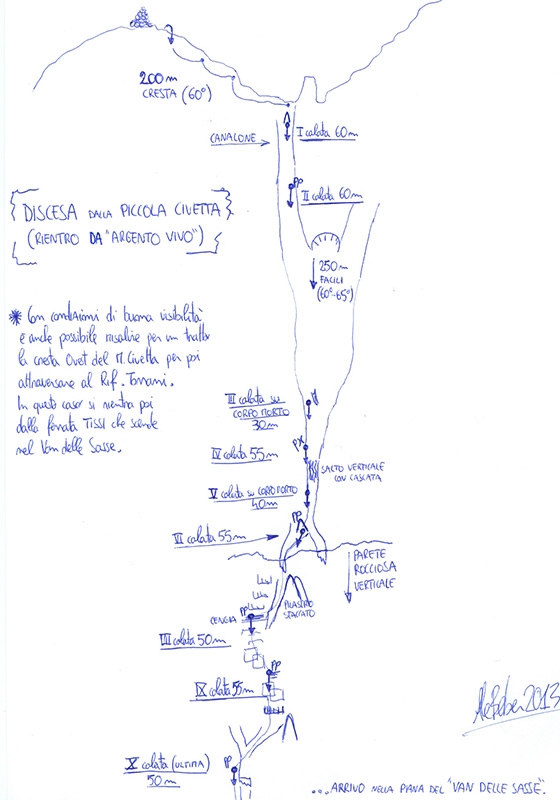 200 m
CRESTA (60°)
CANALONE
I calata 60 m
PP
II calata 60 m
DISCESA DALLA PICCOLA CIVETTA
(RIENTRO DA "ARGENTO VIVO")
250 m
FACILI
(60°-65°)
* Con condizioni di buona visibilità
è anche possibile risalire per un tratto
la cresta Ovet del M. Civetta per poi
attraversare al Rif. Torrani.
In questo caso si rientra poi
dalla ferrata Tissi che scende
nel Van delle Sasse.
III calata su
CORPO MORTO
30 m
PX
IV calata 55 m
SALTO VERTICALE
CON CASCATA
V calata su CORPO MORTO
40 m
PP
VII calata 55 m
PARETE
ROCCIOSA
VERTICALE
PILASTRO
STACCATO
PP
CENGIA
VIII calata 50 m
PP
IX calata 55 m
X calata (ULTIMA)
50 m
PP
AleBeber 2013
...ARRIVO NELLA PIANA DEL "VAN DELLE SASSE".